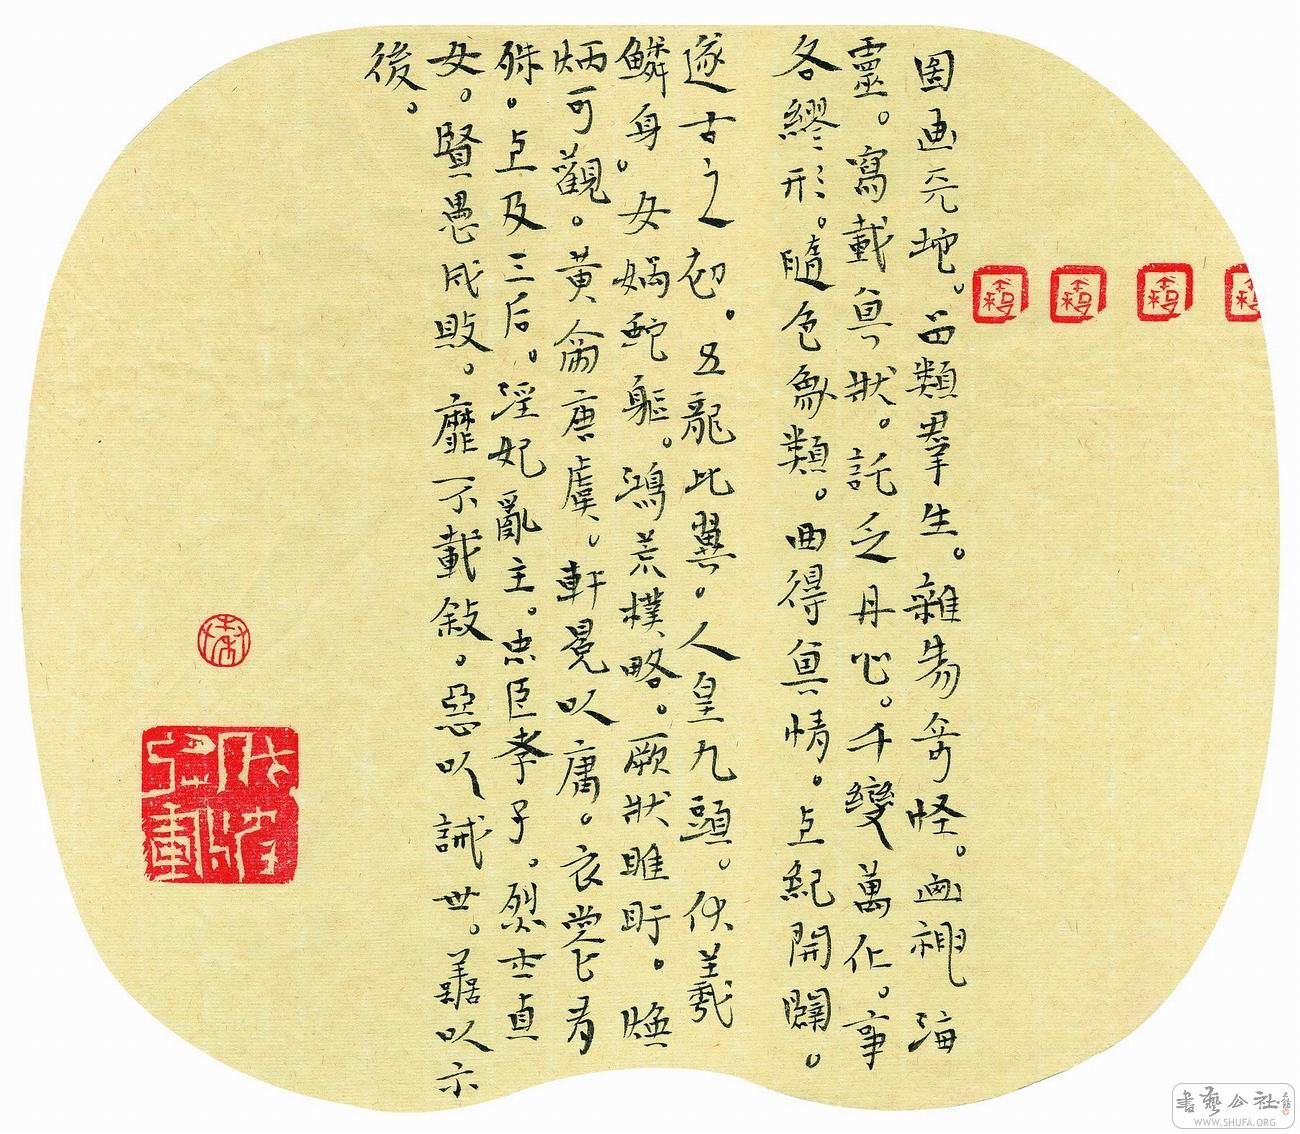 圖画天地。品類羣生。雜物奇怪。画神海
靈。寫載其狀。託之丹心。千變萬化。事
各繆形。隨色象類。曲得其情。上紀開闢。
遂古之初。五龍比翼。人皇九頭。伏羲
鱗身。女媧蛇軀。鴻荒樸略。厥狀睢盱。煥
炳可觀。黃帝唐虞。軒冕以庸。衣裳有
殊。上及三后。淫妃亂主。忠臣孝子。烈士貞
女。賢愚成敗。靡不載敘。惡以誡世。善以示
後。
書藝公社
WWW.SHUFA.ORG